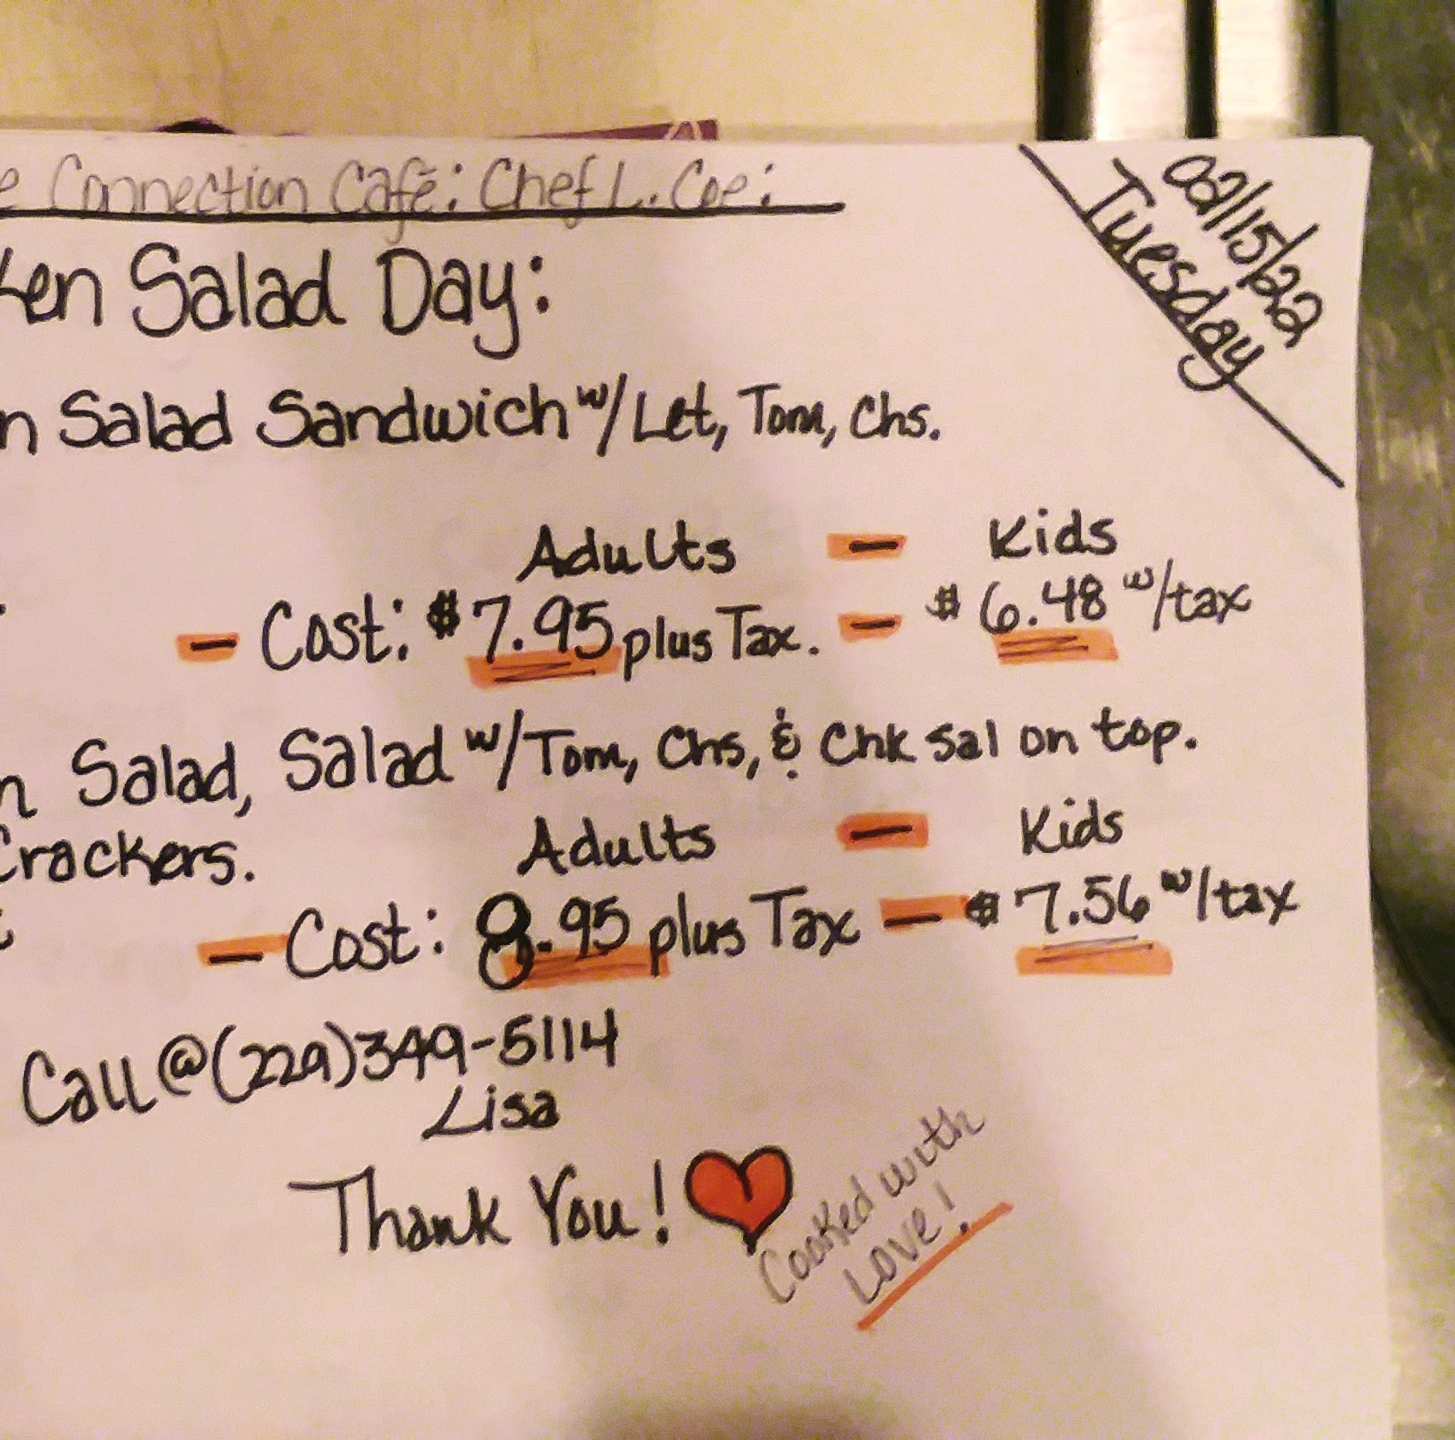 e Connection Café: Chef L. Coe:
02/15/22
Tuesday
ken Salad Day:
n Salad Sandwich w/Let, Tom, Chs.
Adults - Kids
- Cost: $7.95 plus Tax. - $6.48 w/tax
n Salad, Salad w/Tom, Chs, & Chk Sal on top.
Crackers.
Adults - Kids
- Cost: 8.95 plus Tax - $7.56 w/tax
Call @ (229)349-5114
Lisa
Thank You!
Cooked with
Love!